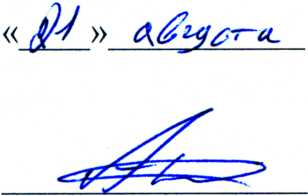 «21» августа